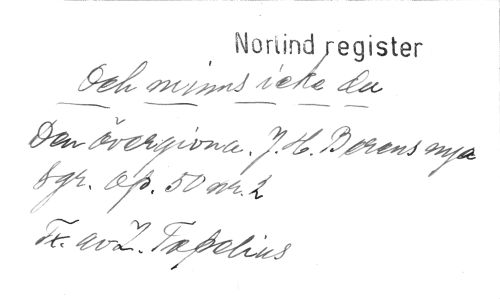 Norlind register
Och minns icke du
Den övergivna. J. H. Berens nya
sgr. Op. 50 nr. 2
Tx. av Z. Topelius